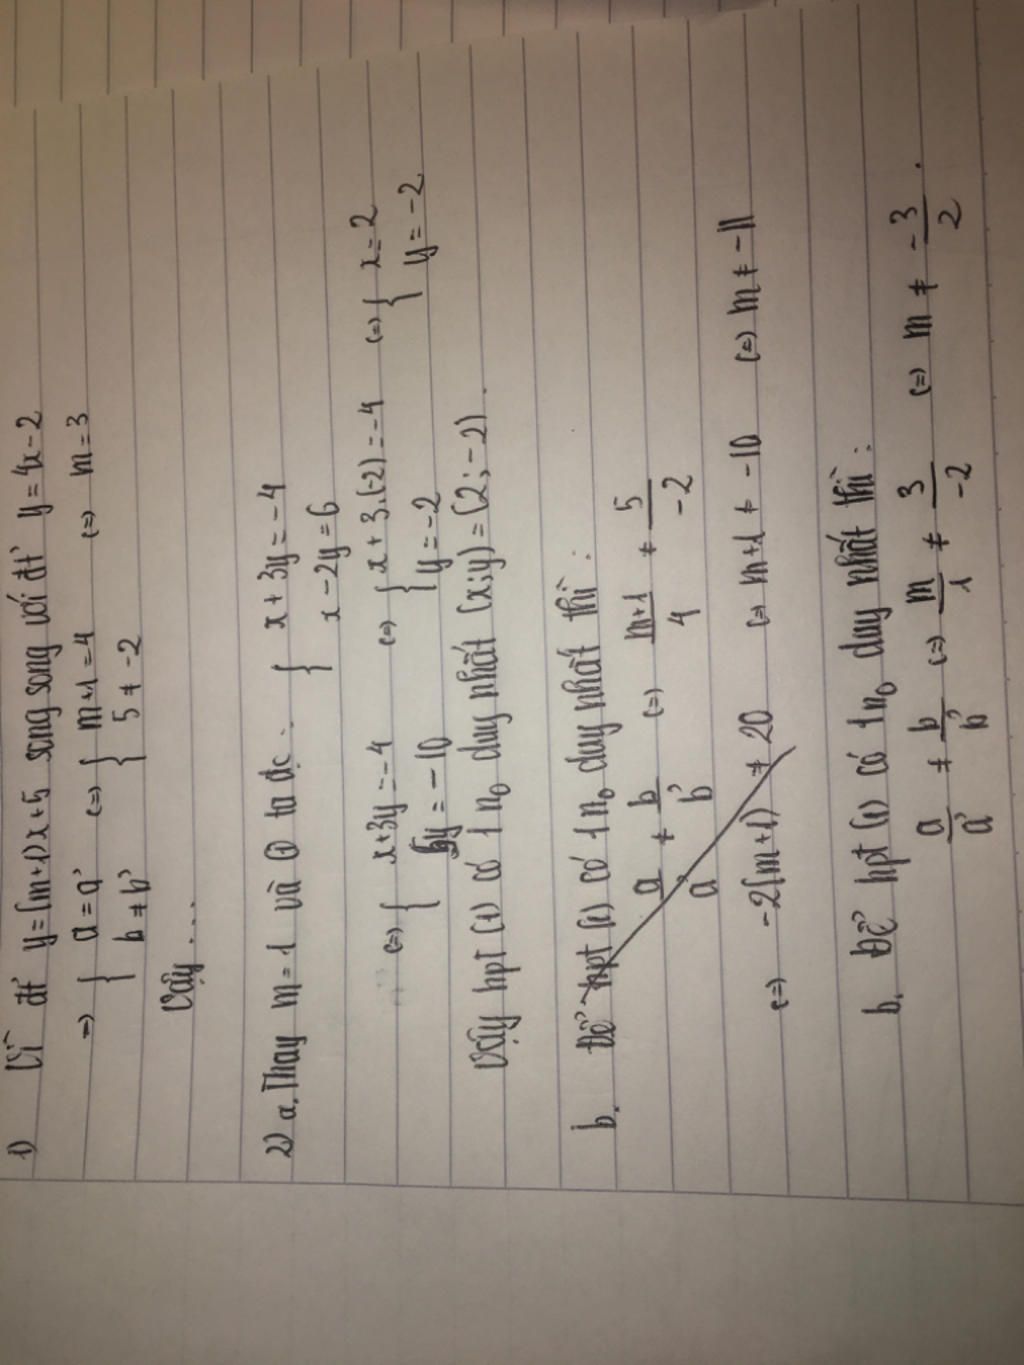 1) Vì đt' y=(m+1)x+5 song song với đt' y=4x-2
=) { a=a' (=) { m+1=4 (=) m=3
b≠b' 5≠-2
Vậy ....
2) a. Thay m=1 và ① ta đc. { x+3y=-4
x-2y=6
(=) { x+3y=-4 (=) { x+3.(-2)=-4 (=) { x=2
5y=-10 y=-2 y=-2
Vậy hpt (1) có 1 n₀ duy nhất (x;y)=(2;-2).
b. Để hpt (1) có 1 n₀ duy nhất thì:
a/a' ≠ b/b' (=) m+1/4 ≠ 5/-2
(=) -2(m+1) ≠ 20 (=) m+1≠-10 (=) m≠-11
b. Để hpt (1) có 1 n₀ duy nhất thì:
a/a' ≠ b/b' (=) m/1 ≠ 3/-2 (=) m≠ -3/2.